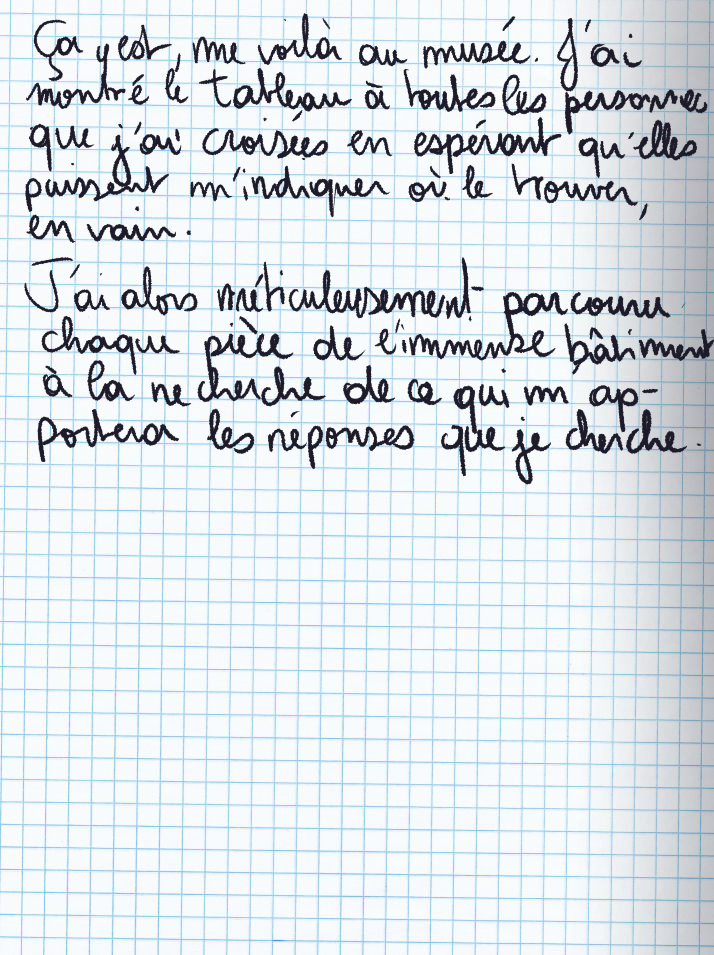 Ça y est, me voilà au musée. J'ai
montré le tableau à toutes les personnes
que j'ai croisées en espérant qu'elles
puissent m'indiquer où le trouver,
en vain.
J'ai alors méticuleusement parcouru
chaque pièce de l'immense bâtiment
à la recherche de ce qui m'ap-
portera les réponses que je cherche.